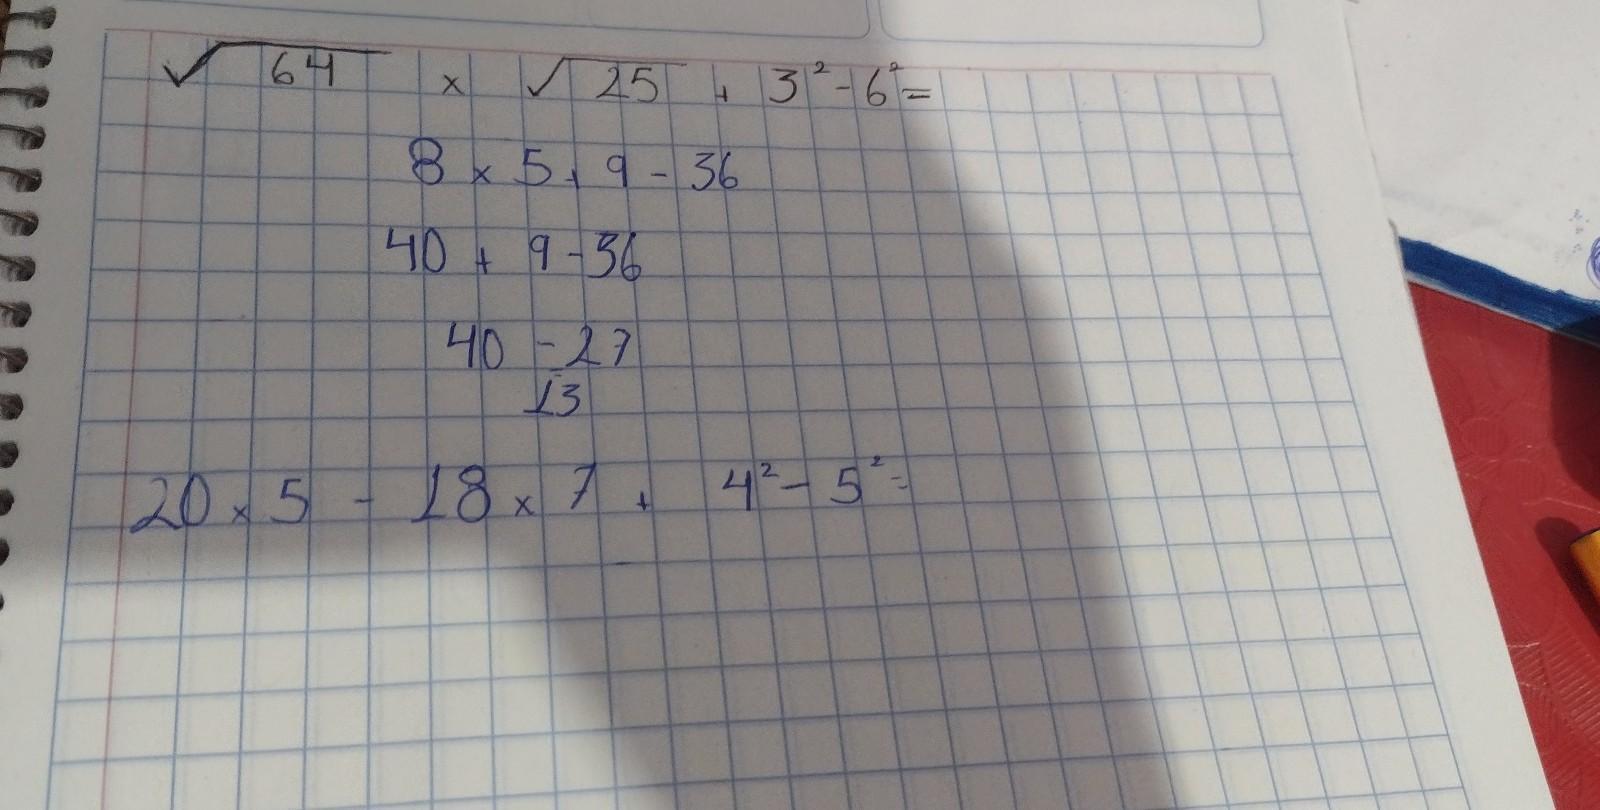 √64 x √25 + 3² - 6² =
8 x 5 + 9 - 36
40 + 9 - 36
40 - 27
13
20 x 5 - 18 x 7 + 4² - 5² =